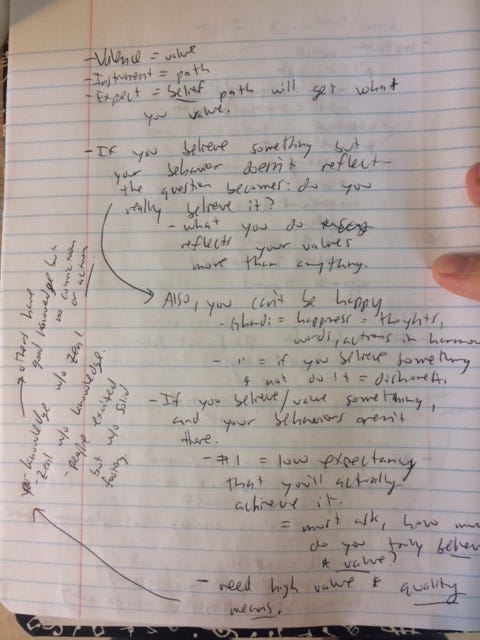 - Valence = value
- Instrument = path
- Expect = belief path will get what
you value.
- If you believe something but
your behavior doesn't reflect -
the question becomes: do you
really believe it?
- what you do
reflects your values
more than anything.
Also, you can't be happy
- Ghandi = happiness = thoughts,
words, actions in harmon
- " = if you believe something
& not do it = dishonest.
- If you believe/value something,
and your behaviors aren't
there.
- #1 = low expectancy
that you'll actually
achieve it.
= must ask, how mu
do you truly believ
& value?
- need high value & quality
means.
- knowledge w/o zeal
- zeal w/o knowledge.
- people excited
but w/o solid
→ others have
good knowledge but
no conviction
or action